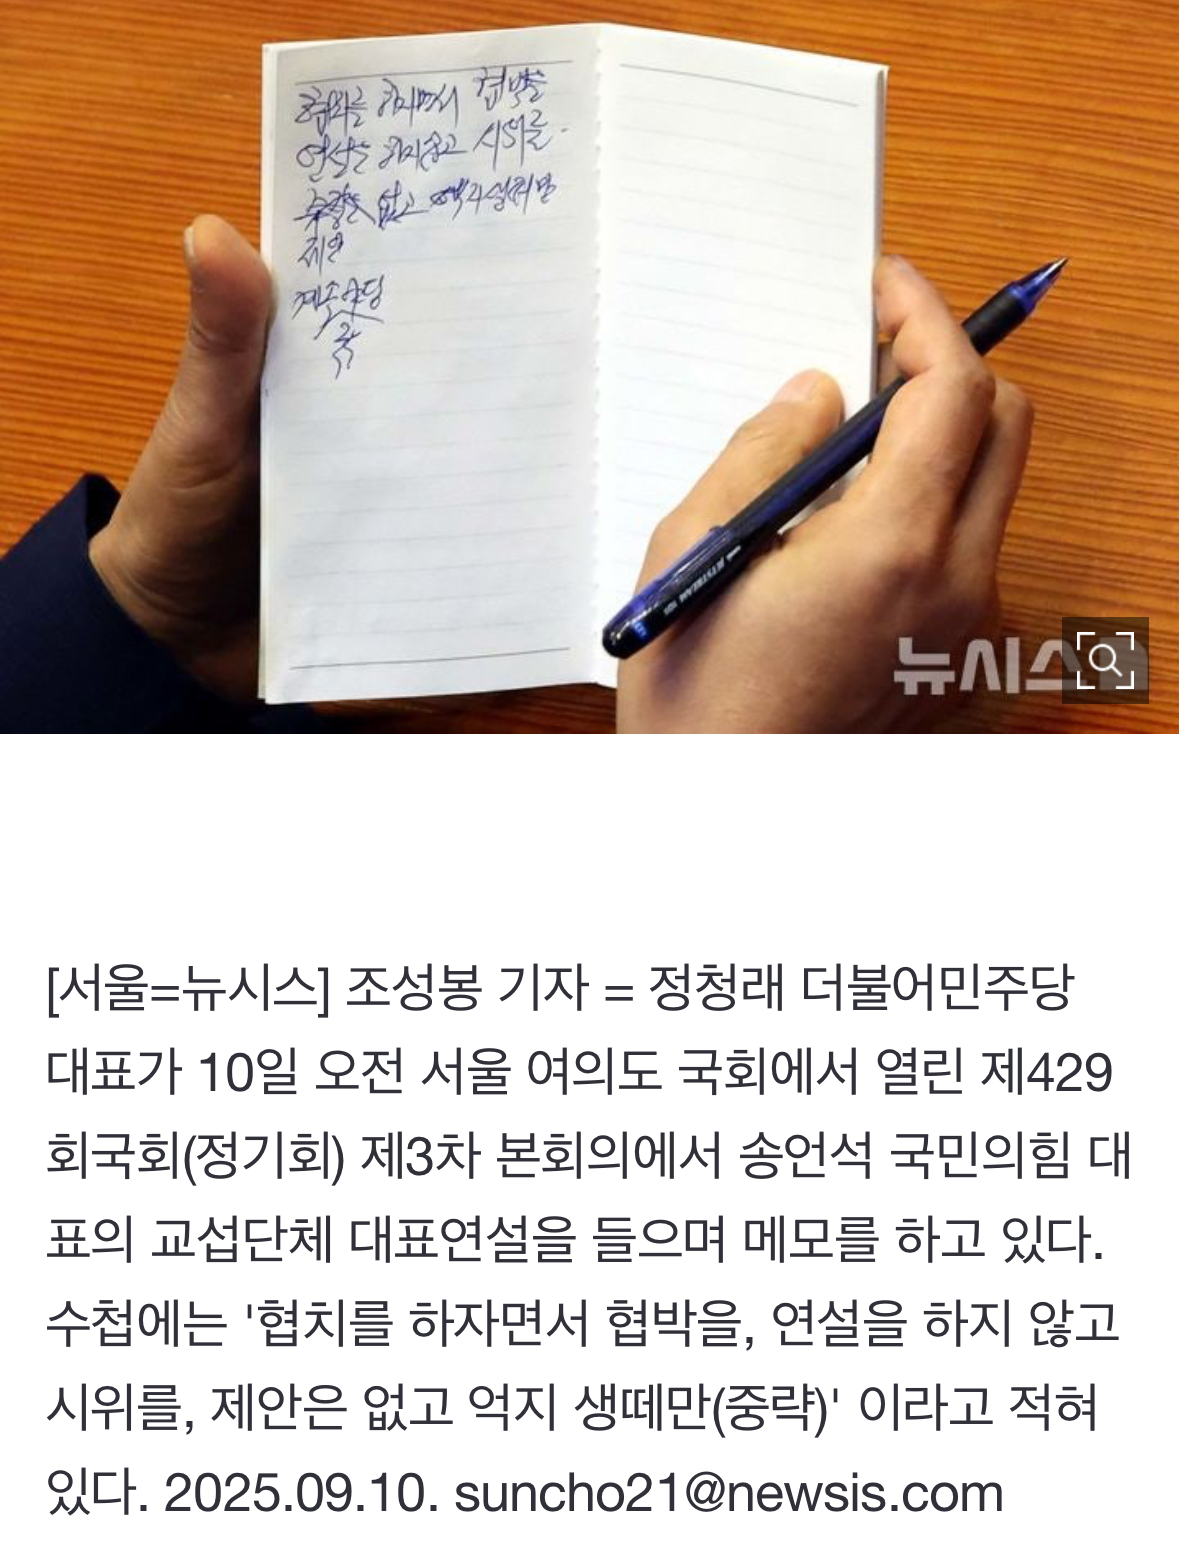 협치를 하자면서 협박을
연설을 하지 않고 시위를.
없고 억지 생떼만
제안
뉴시스
[서울=뉴시스] 조성봉 기자 = 정청래 더불어민주당
대표가 10일 오전 서울 여의도 국회에서 열린 제429
회국회(정기회) 제3차 본회의에서 송언석 국민의힘 대
표의 교섭단체 대표연설을 들으며 메모를 하고 있다.
수첩에는 '협치를 하자면서 협박을, 연설을 하지 않고
시위를, 제안은 없고 억지 생떼만(중략)' 이라고 적혀
있다. 2025.09.10. suncho21@newsis.com